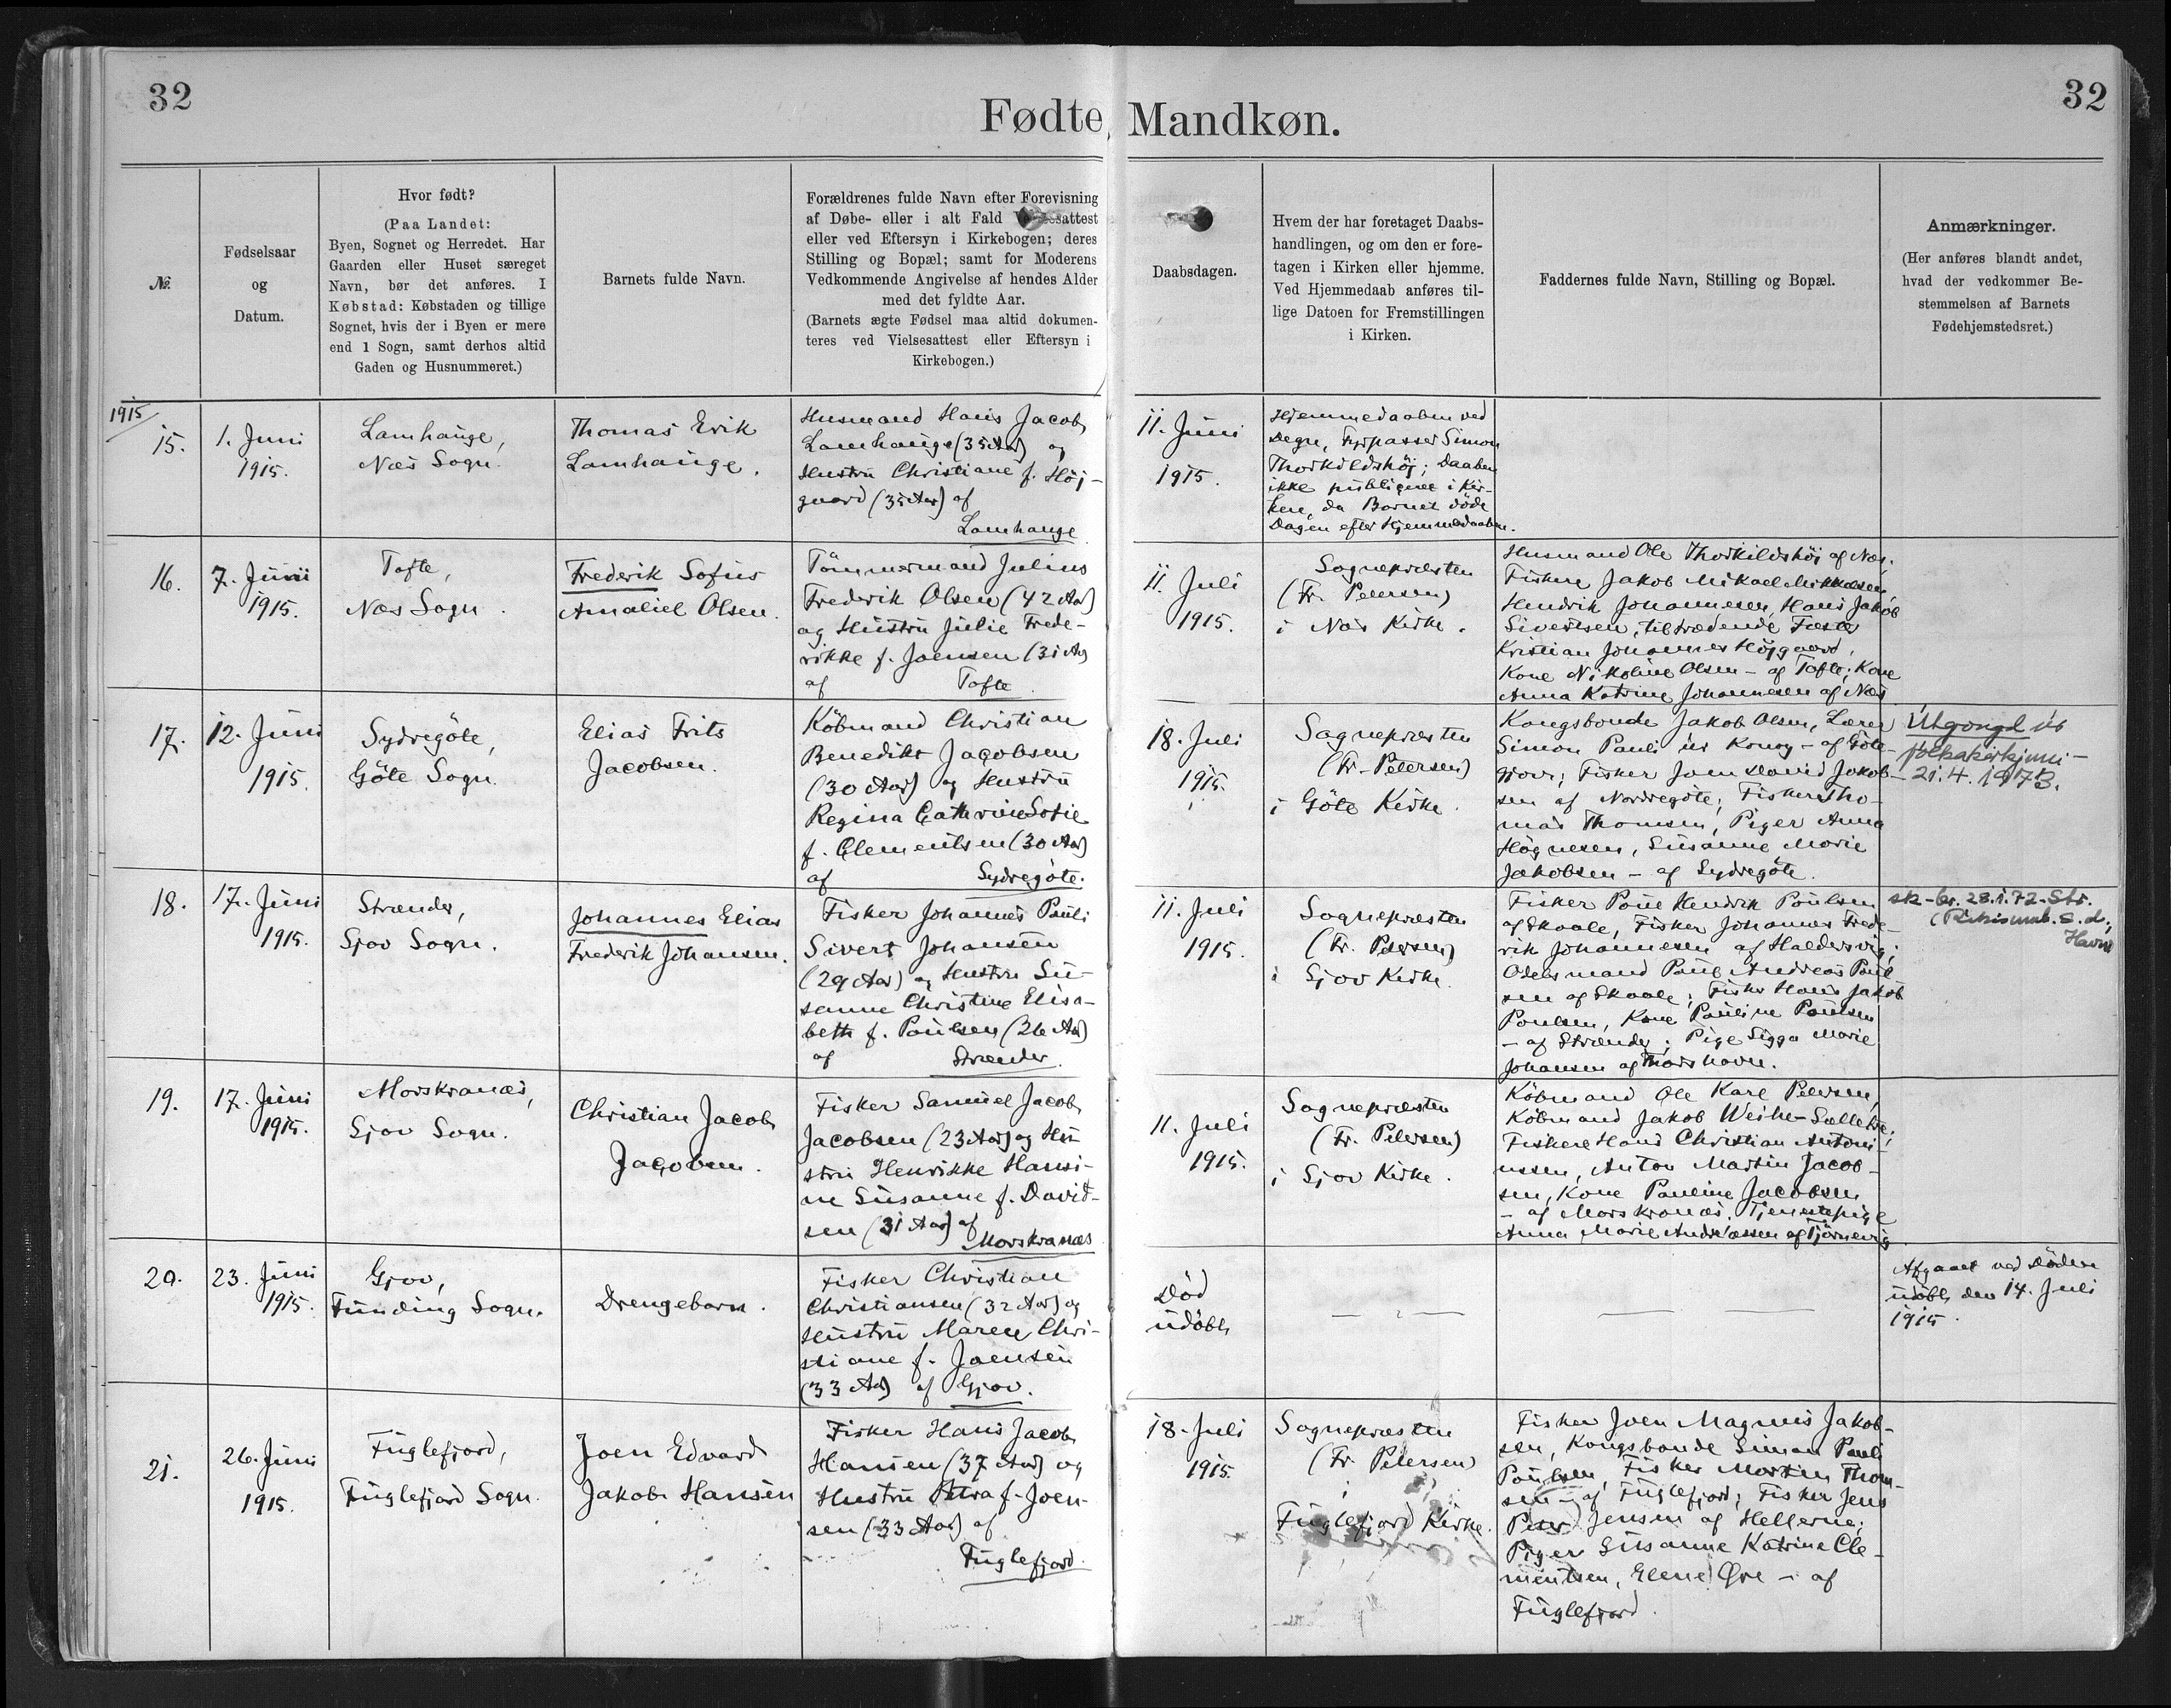 32
32
Fødte, Mandkøn.
№.
Fødselsaar
og
Datum.
Hvor født?
(Paa Landet:
Byen, Sognet og Herredet. Har
Gaarden eller Huset særeget
Navn, bør det anføres. I
Købstad: Købstaden og tillige
Sognet, hvis der i Byen er mere
end 1 Sogn, samt derhos altid
Gaden og Husnummeret.)
Barnets fulde Navn.
Forældrenes fulde Navn efter Forevisning
af Døbe- eller i alt Fald
eller ved Eftersyn i Kirkebogen; deres
Stilling og Bopæl; samt for Moderens
Vedkommende Angivelse af hendes Alder
med det fyldte Aar.
(Barnets ægte Fødsel maa altid dokumen-
teres ved Vielsesattest eller Eftersyn i
Kirkebogen.)
Daabsdagen.
Hvem der har foretaget Daabs-
handlingen, og om den er fore-
tagen i Kirken eller hjemme.
Ved Hjemmedaab anføres til-
lige Datoen for Fremstillingen
i Kirken.
Faddernes fulde Navn, Stilling og Bopæl.
Anmærkninger.
(Her anføres blandt andet,
hvad der vedkommer Be-
stemmelsen af Barnets
Fødehjemstedsret.)
1915
15.
1. Juni
1915.
Lamhauge,
Næs Sogn.
Thomas Erik
Lamhauge.
Husmand Hans Jacob
Lamhauge (35 Aar) og
Hustru Christiane f. Höj-
gaard (35 Aar) af
Lamhauge
11. Juni
1915.
Hjemmedaaben ved
Degn, Fyrpasser Simon
Thorkildshöj; Daaben
ikke publiceret i Kir-
ken, da Barnet döde
Dagen efter Hjemmedaaben.
16.
7. Juni
1915.
Tofte,
Næs Sogn.
Frederik Sofus
Amaliel Olsen.
Tömmermand Julius
Frederik Olsen (42 Aar)
og Hustru Julie Frede-
rikke f. Joensen (31 Aar)
af Tofte
11. Juli
1915.
Sognepræsten
(Fr. Petersen)
i Næs Kirke.
Husmand Ole Thorkildshöj af Næs.
Fiskere Jakob Mikael Mikkelsen,
Hendrik Johannesen, Hans Jakob
Sivertsen, tiltrædende Fæster
Kristian Johannes Höjgaard,
Kone Nikoline Olsen - af Tofte; Kone
Anna Katrine Johannesen af Næs
17.
12. Juni
1915.
Sydregöte,
Göte Sogn.
Elias Frits
Jacobsen.
Köbmand Christian
Benedikt Jacobsen
(30 Aar) og Hustru
Regina Cathrine Sofie
f. Clementsen (30 Aar)
af Sydregöte.
18. Juli
1915.
Sognepræsten
(Fr. Petersen)
i Göte Kirke.
Kongsbonde Jakob Olsen, Lærer
Simon Pauli úr Konoy - af Göte-
gjov; Fisker Joen David Jakob-
sen af Nordregöte; Fiskere Tho-
mas Thomsen, Piger Anna
Högnesen, Susanne Marie
Jakobsen - af Sydregöte.
Útgongd úr
fólkakirkjuni -
21.4.1973.
18.
17. Juni
1915.
Strænder,
Sjov Sogn.
Johannes Elias
Frederik Johansen.
Fisker Johannes Pauli
Sivert Johansen
(29 Aar) og Hustru Su-
sanne Christine Elisa-
beth f. Poulsen (26 Aar)
af Strænder.
11. Juli
1915.
Sognepræsten
(Fr. Petersen)
i Sjov Kirke.
Fisker Poul Hendrik Poulsen
af Skaale, Fisker Johannes Frede-
rik Johannesen af Haldersvig;
Odelsmand Poul Andreas Poul
sen af Skaale; Fisker Hans Jakob
Poulsen, Kone Pauline Poulsen
- af Strænder; Pige Sigga Marie
Johansen af Thorshavn.
sk-br. 28.1.72. Str.
(Ríkisumb. s.d.,
Havn
19.
17. Juni
1915.
Morskranæs,
Sjov Sogn.
Christian Jacob
Jacobsen.
Fisker Samuel Jacob
Jacobsen (23 Aar) og Hu-
stru Henrikke Hansi-
ne Susanne f. David-
sen (31 Aar) af
Morskranæs
11. Juli
1915.
Sognepræsten
(Fr. Petersen)
i Sjov Kirke.
Köbmand Ole Karl Petersen,
Köbmand Jakob Weihe-Selletræ;
Fiskere Hans Christian Antoni-
ussen, Anton Martin Jacob-
sen, Kone Pauline Jacobsen
- af Morskranæs. Tjenestepige
Anna Marie Andreassen af Tjörnevig
20.
23. Juni
1915.
Gjov,
Funding Sogn.
Drengebarn.
Fisker Christian
Christiansen (32 Aar) og
Hustru Maren Chri-
stiane f. Joensen
(33 Aar) af Gjov.
Död
udöbt
Afgaaet ved Döden
udöbt, den 14. Juli
1915.
21.
26. Juni
1915.
Fuglefjord,
Fuglefjord Sogn.
Joen Edvard
Jakob Hansen
Fisker Hans Jacob
Hansen (37 Aar) og
Hustru Petra f. Joen-
sen (33 Aar) af
Fuglefjord.
18. Juli
1915.
Sognepræsten
(Fr. Petersen)
i
Fuglefjord Kirke.
Fisker Joen Magnus Jakob-
sen, Kongsbonde Simon Pauli
Poulsen, Fisker Morten Thom-
sen - af Fuglefjord; Fisker Jens
Peter Jensen af Hellerne;
Piger Susanne Katrine Cle-
mentsen, Elene Øre - af
Fuglefjord.